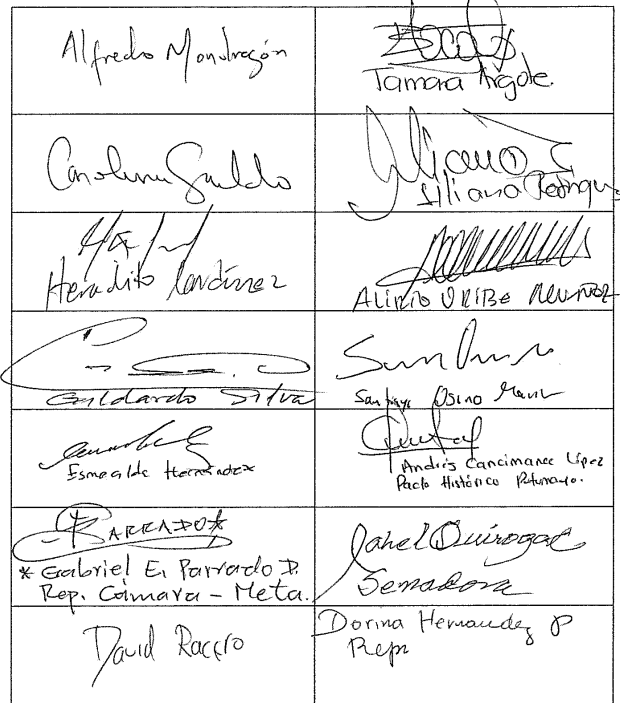 Alfredo Mondragón
Tamara Argote.
Carolina Giraldo
Liliana Rodrigu
Heraclito Landinez
ALIRIO URIBE MUÑOZ
Gildardo Silva
Santiago Osorio Marin
Esmeralda Hernandez
Andrés Cancimance López
Pacto Histórico Putumayo.
PARRADO
* Gabriel E. Parrado D.
Rep. Cámara - Meta.
Jahel Quiroga C
Senadora
David Racero
Dorina Hernandez P
Repr